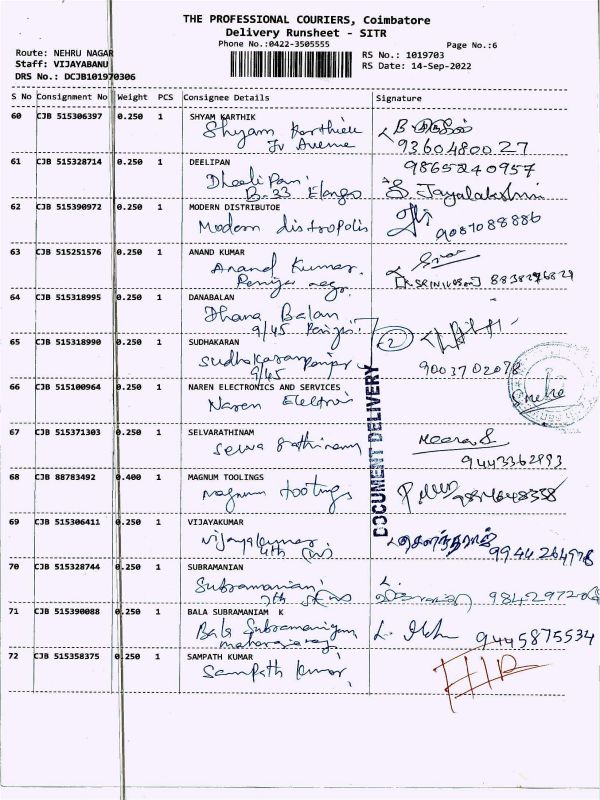 THE PROFESSIONAL COURIERS, Coimbatore
Delivery Runsheet - SITR
Phone No.:0422-3505555
Page No.:6
Route: NEHRU NAGAR
RS No.: 1019703
Staff: VIJAYABANU
RS Date: 14-Sep-2022
DRS No.: DCJB101970306
S No Consignment No Weight PCS Consignee Details Signature
60 CJB 515306397 0.250 1 SHYAM KARTHIK
Shyam Karthick
Avenue
9360480027
61 CJB 515328714 0.250 1 DEELIPAN
9865240957
Dheelipan
B-33 Elango
S. Jayalakshmi
62 CJB 515390972 0.250 1 MODERN DISTRIBUTOE
Modern distropolis
9087088886
63 CJB 515251576 0.250 1 ANAND KUMAR
Anand Kumar
[K. SRINIVASAN] 8838276827
64 CJB 515318995 0.250 1 DANABALAN
Dhana Balan
9/45
65 CJB 515318990 0.250 1 SUDHAKARAN
2
Sudhakaran
9/45
9003702078
66 CJB 515100964 0.250 1 NAREN ELECTRONICS AND SERVICES
Naren Eleltroi
DOCUMENT DELIVERY
67 CJB 515371303 0.250 1 SELVARATHINAM
Selva rathinam
Meera S
9443362893
68 CJB 88783492 0.400 1 MAGNUM TOOLINGS
Magnum toolings
69 CJB 515306411 0.250 1 VIJAYAKUMAR
Vijayakumar
4th
9944264978
70 CJB 515328744 0.250 1 SUBRAMANIAN
Subramanian
7th
71 CJB 515390088 0.250 1 BALA SUBRAMANIAM K
Bala Subramaniyam
9445875534
72 CJB 515358375 0.250 1 SAMPATH KUMAR
Sampath kumar